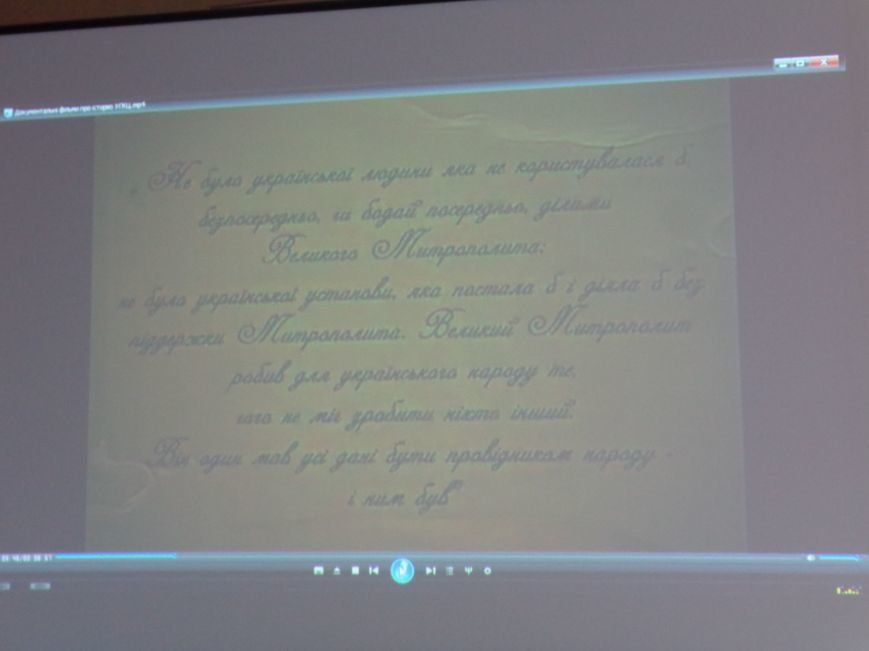 Документальні фільми про історію УГКЦ.mp4
„ Не було української людини яка не користувалася б
безпосередньо, чи бодай посередньо, ділами
Великого Митрополита:
не було української установи, яка постала б і діяла б без
піддержки Митрополита. Великий Митрополит
робив для українського народу те,
чого не міг зробити ніхто інший.
Він один мав усі дані бути провідником народу -
і ним був"